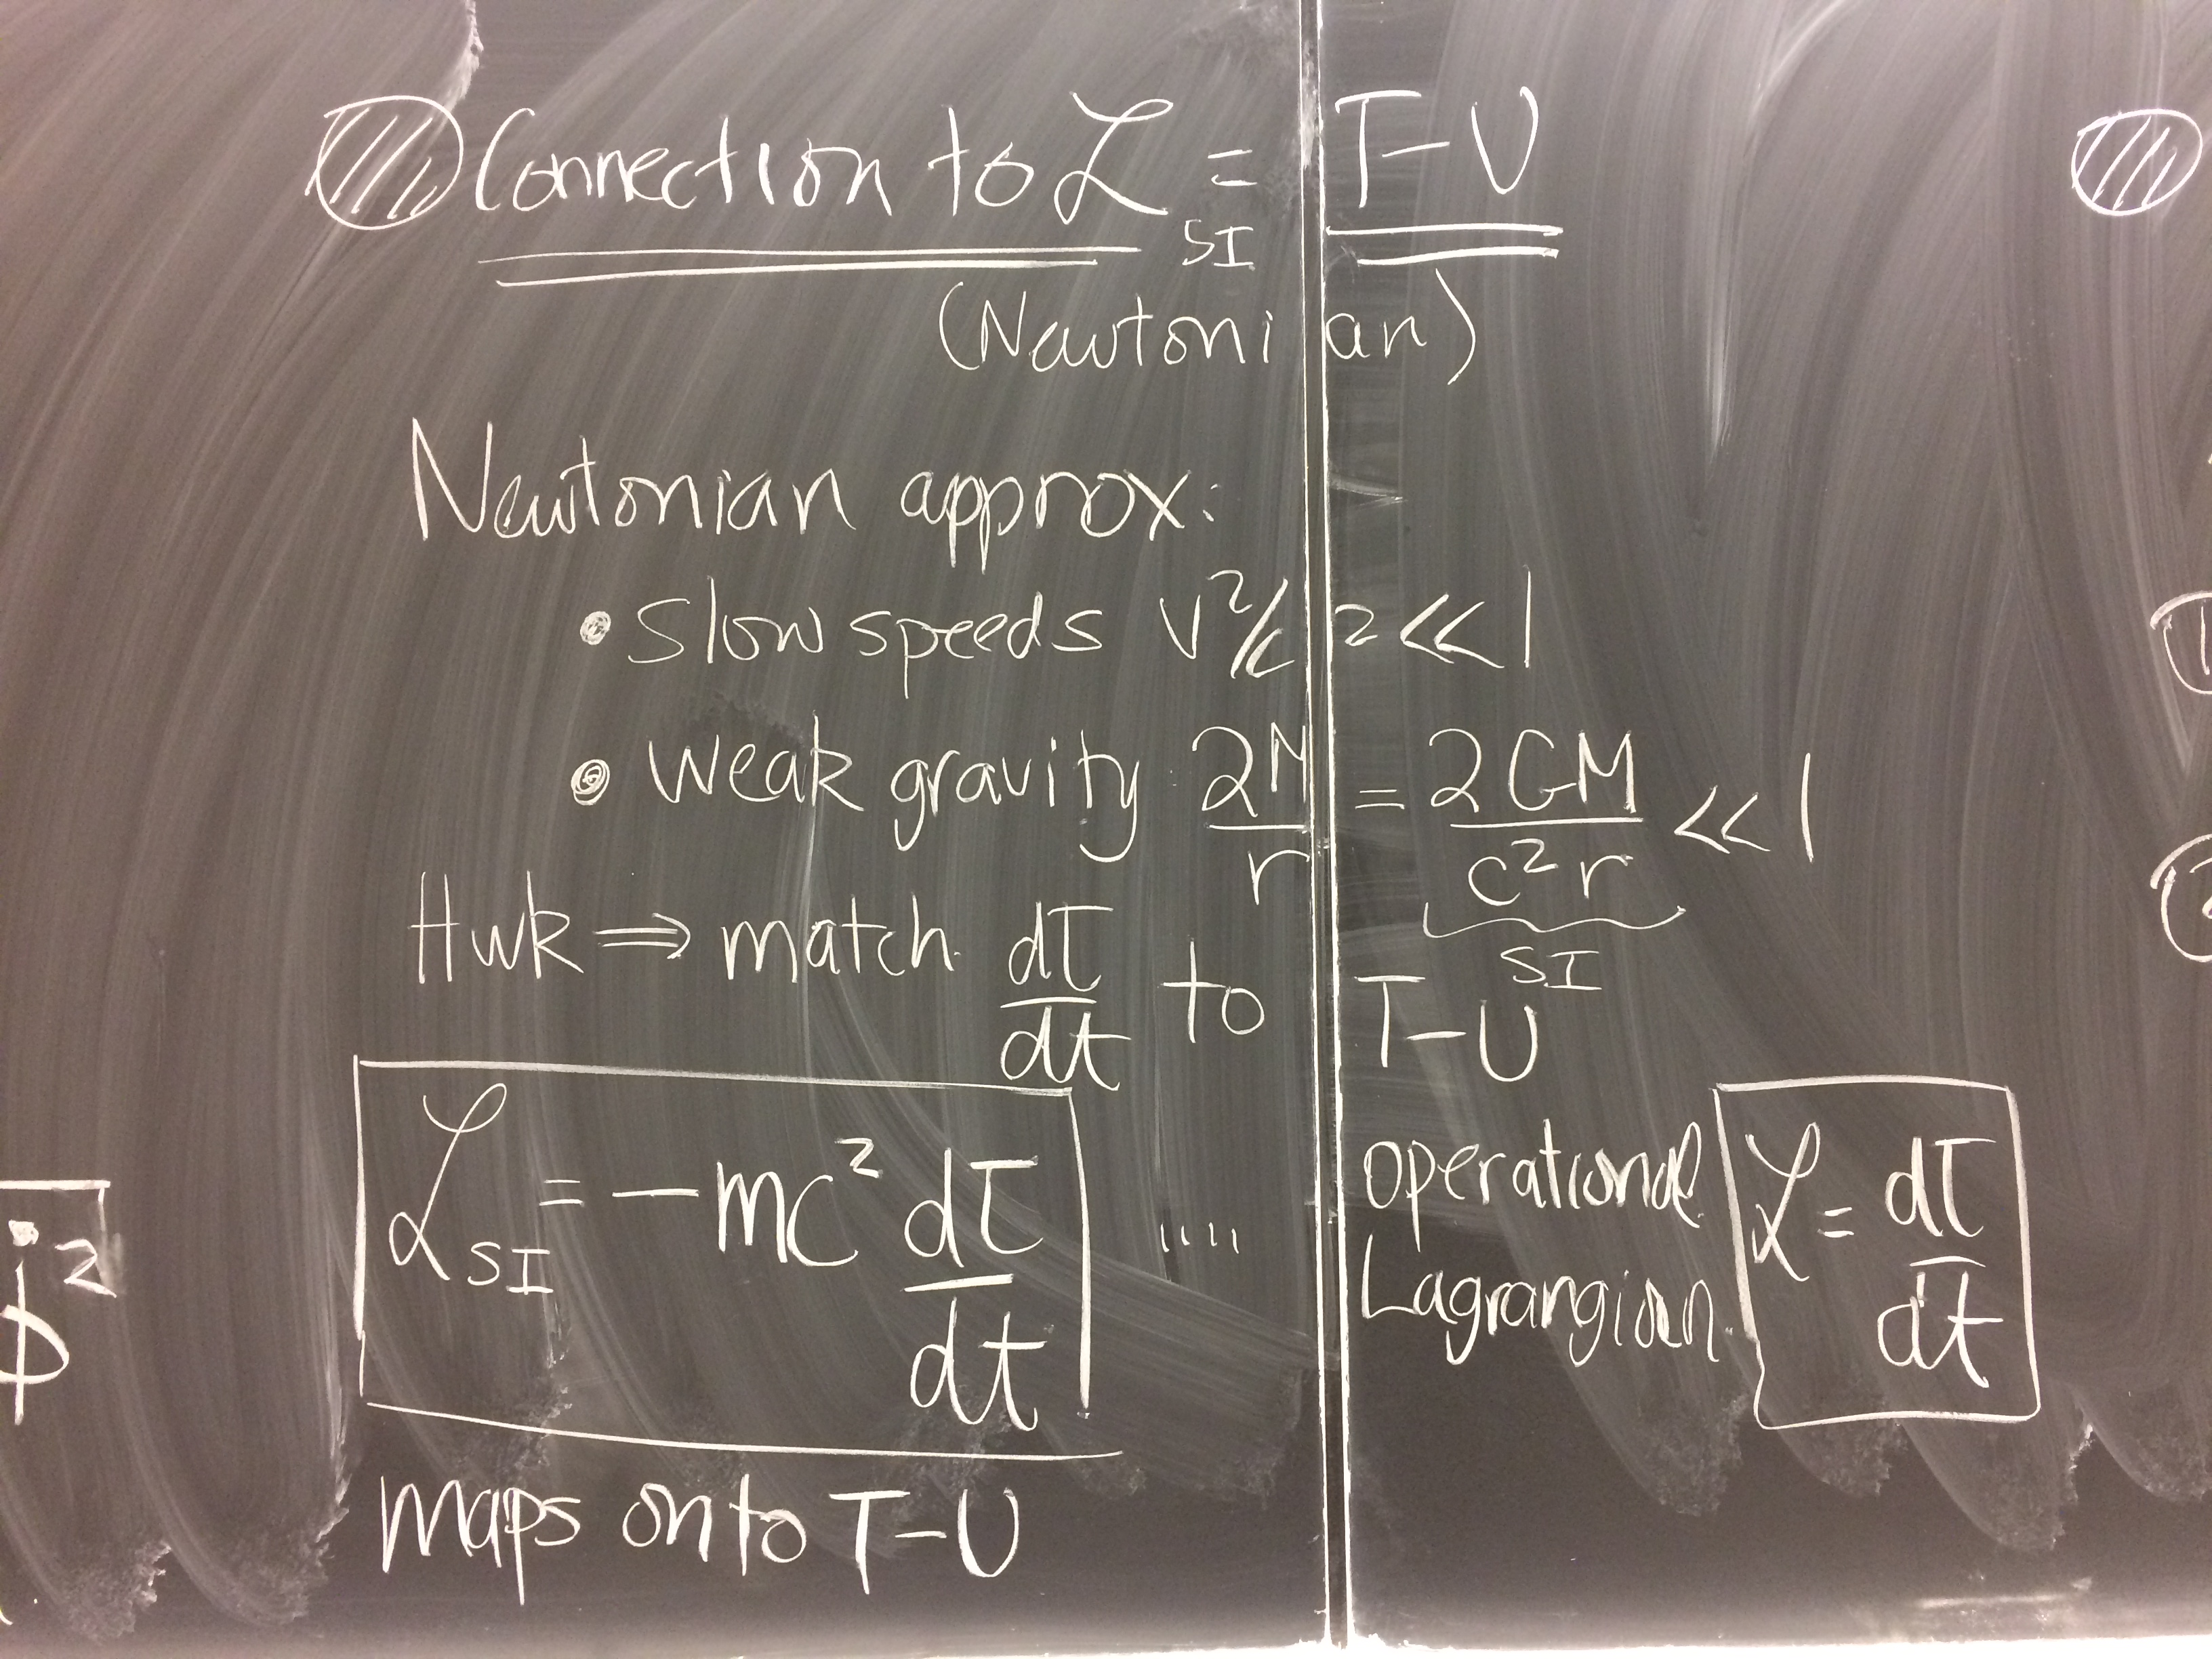 Connection to ℒ = T-U
SI
(Newtonian)
Newtonian approx:
• Slow speeds v²/c² << 1
• Weak gravity 2M/r = 2GM/c²r << 1
SI
Hwk ⇒ match dτ/dt to T-U
ℒ_SI = -mc² dτ/dt .... Operational Lagrangian ℒ = dτ/dt
maps onto T-U